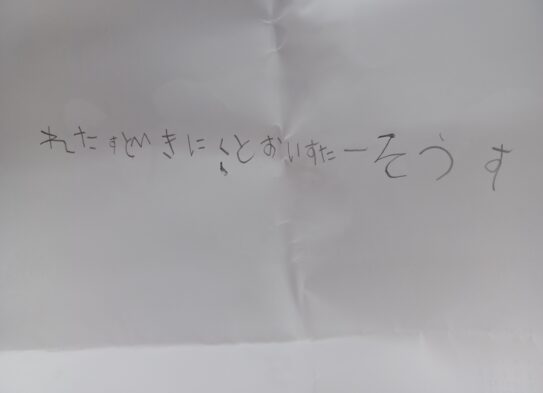 れたすといきにくとおいすたーそうす